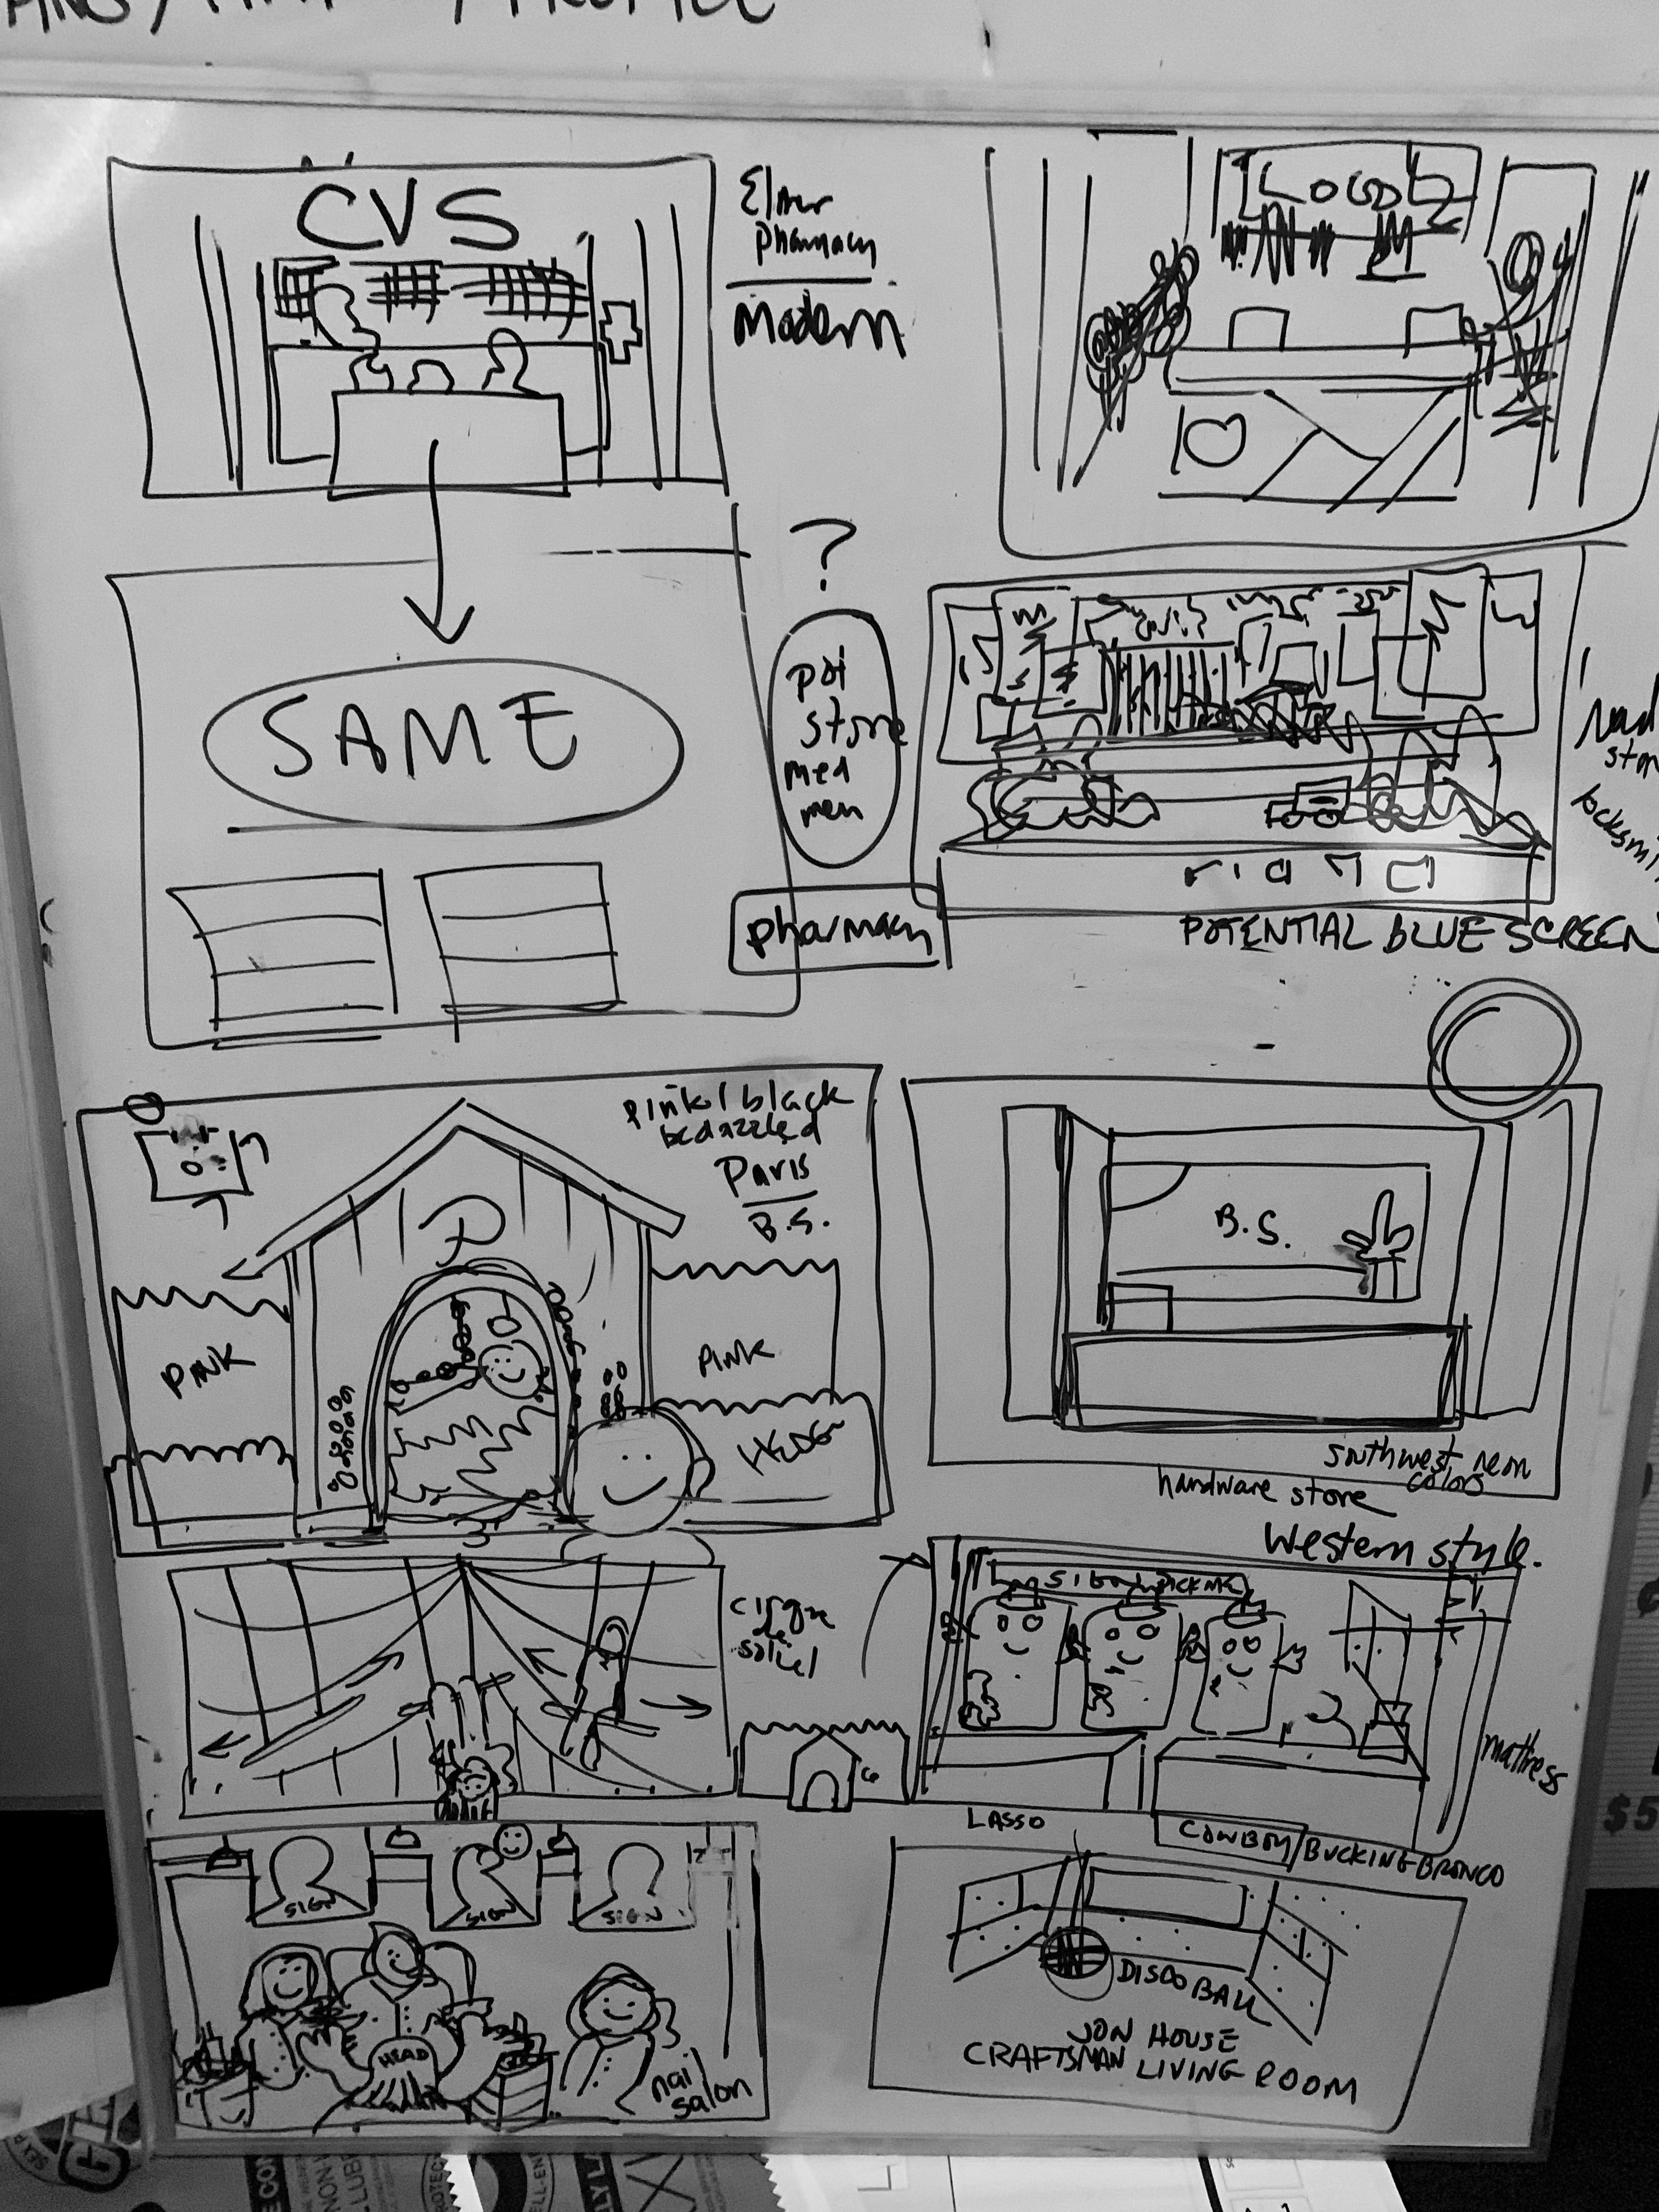 CVS
Pharmacy
Modern
SAME
?
pot
store
med
men
pharmacy
POTENTIAL BLUE SCREEN
pink/black
bedazzled
Paris
B.S.
P
PINK
PINK
HEDGE
B.S.
southwest neon
colors
hardware store
Western style.
cirque
de
soliel
mattress
LASSO
COWBOY/BUCKING BRONCO
SIGN
SIGN
SIGN
HEAD
nail
salon
DISCO BALL
JON HOUSE
CRAFTSMAN LIVING ROOM
$5